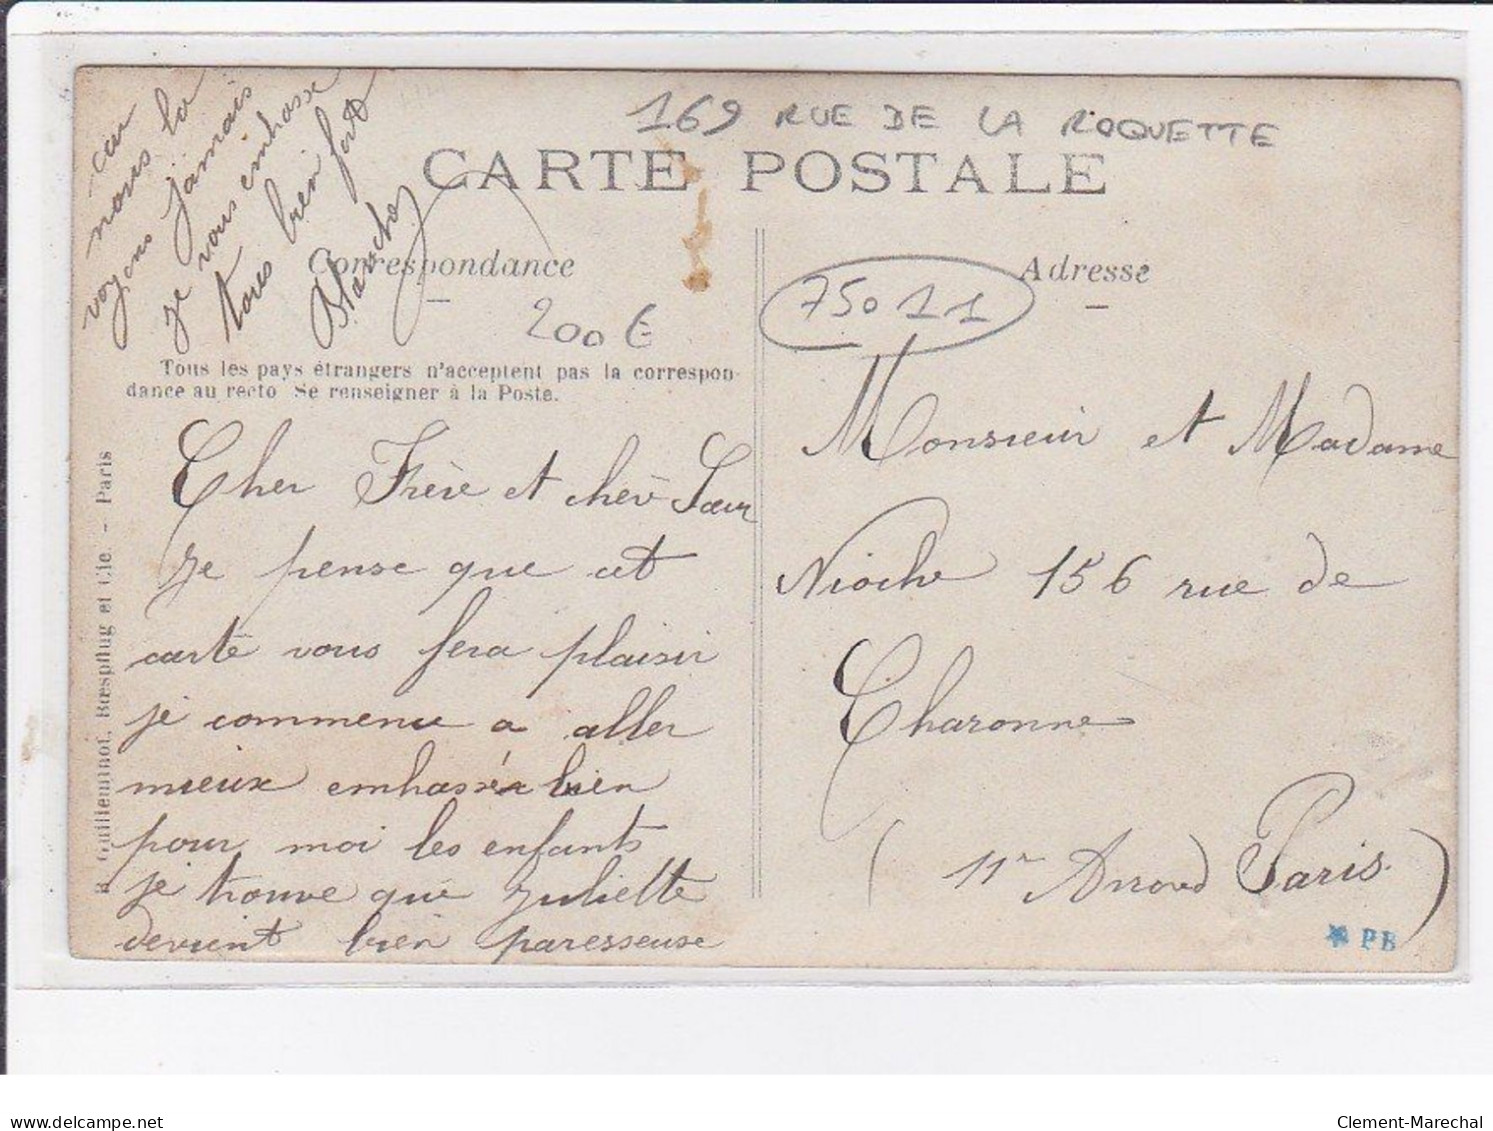 169 RUE DE LA ROQUETTE
CARTE POSTALE
Correspondance
Adresse
75011
200€
Tous les pays étrangers n'acceptent pas la correspon-
dance au recto Se renseigner à la Poste.
Cher Frère et chère Sœur
je pense que cet
carte vous fera plaisir
je commence a aller
mieux embrassér bien
pour moi les enfants
je trouve que Juliette
devient bien paresseuse
car
nous la
voyons jamais
je vous embrasse
tous bien fort
Blanche
Monsieur et Madame
Nioche 156 rue de
Charonne
(11r Arrond Paris.)
R. Guilleminot, Bœspflug et Cie. - Paris
* PB
delcampe.net
Clement-Marechal